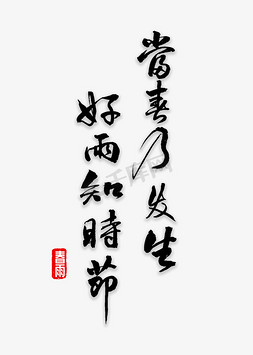 好雨知時節
當春乃发生
春雨
千库网